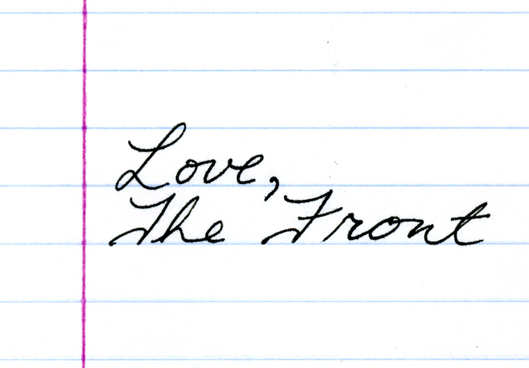 Love,
The Front